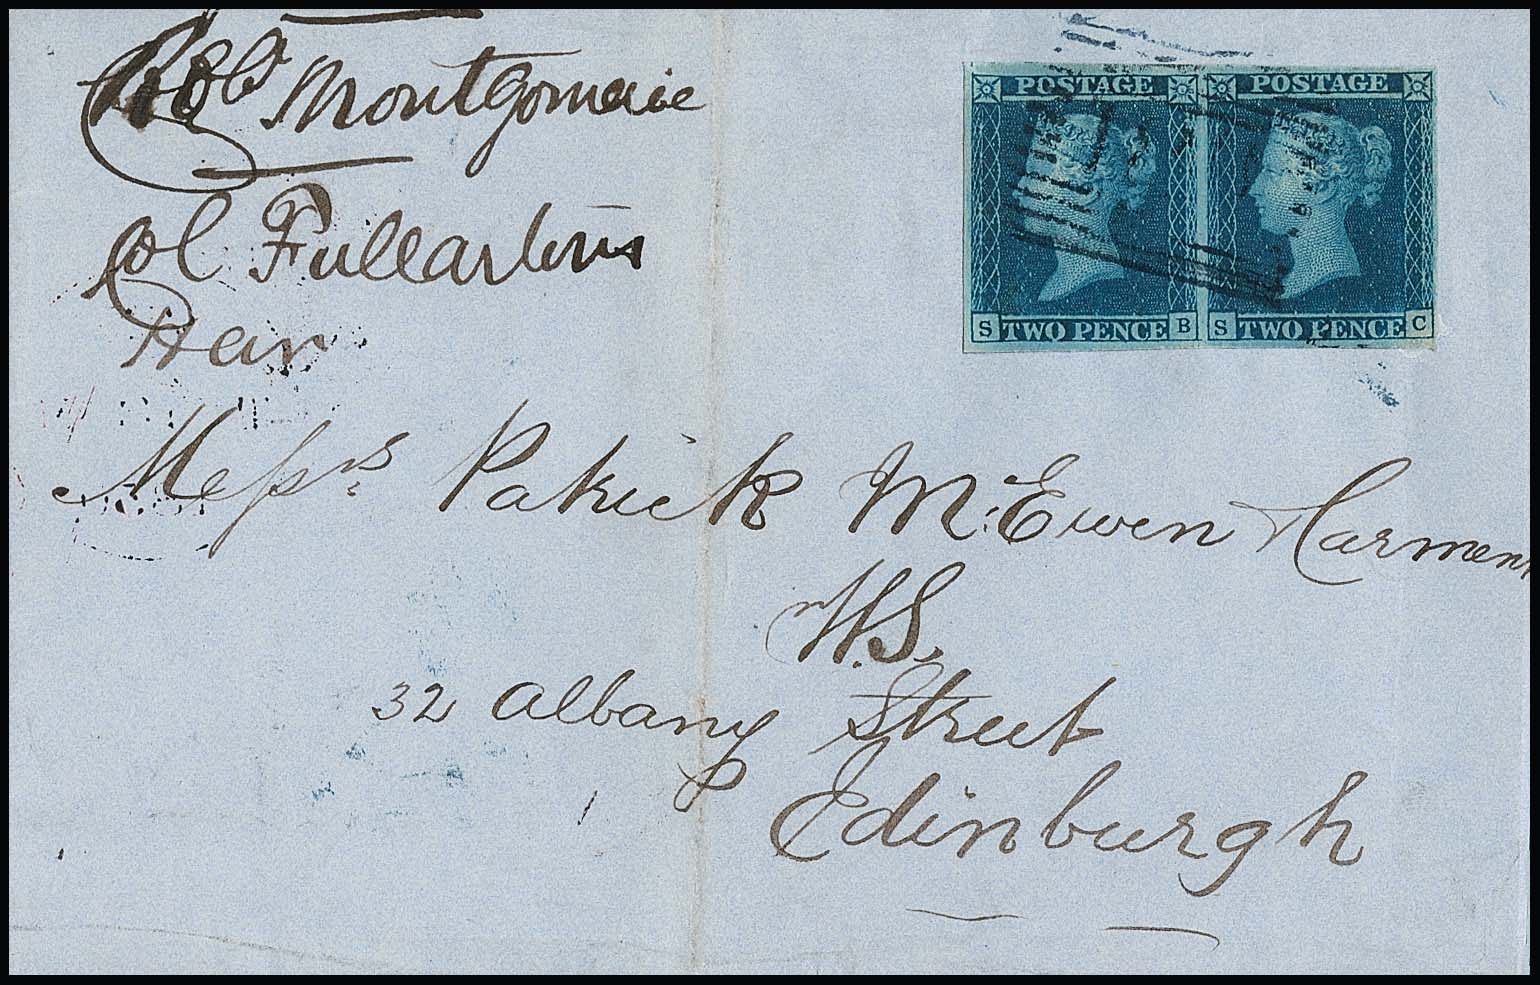 Robt Montgomerie
Col Fullartons
Messrs Patrick McEwen Carment
W.S.
32 Albany Street
Edinburgh
POSTAGE POSTAGE
S TWO PENCE B S TWO PENCE C